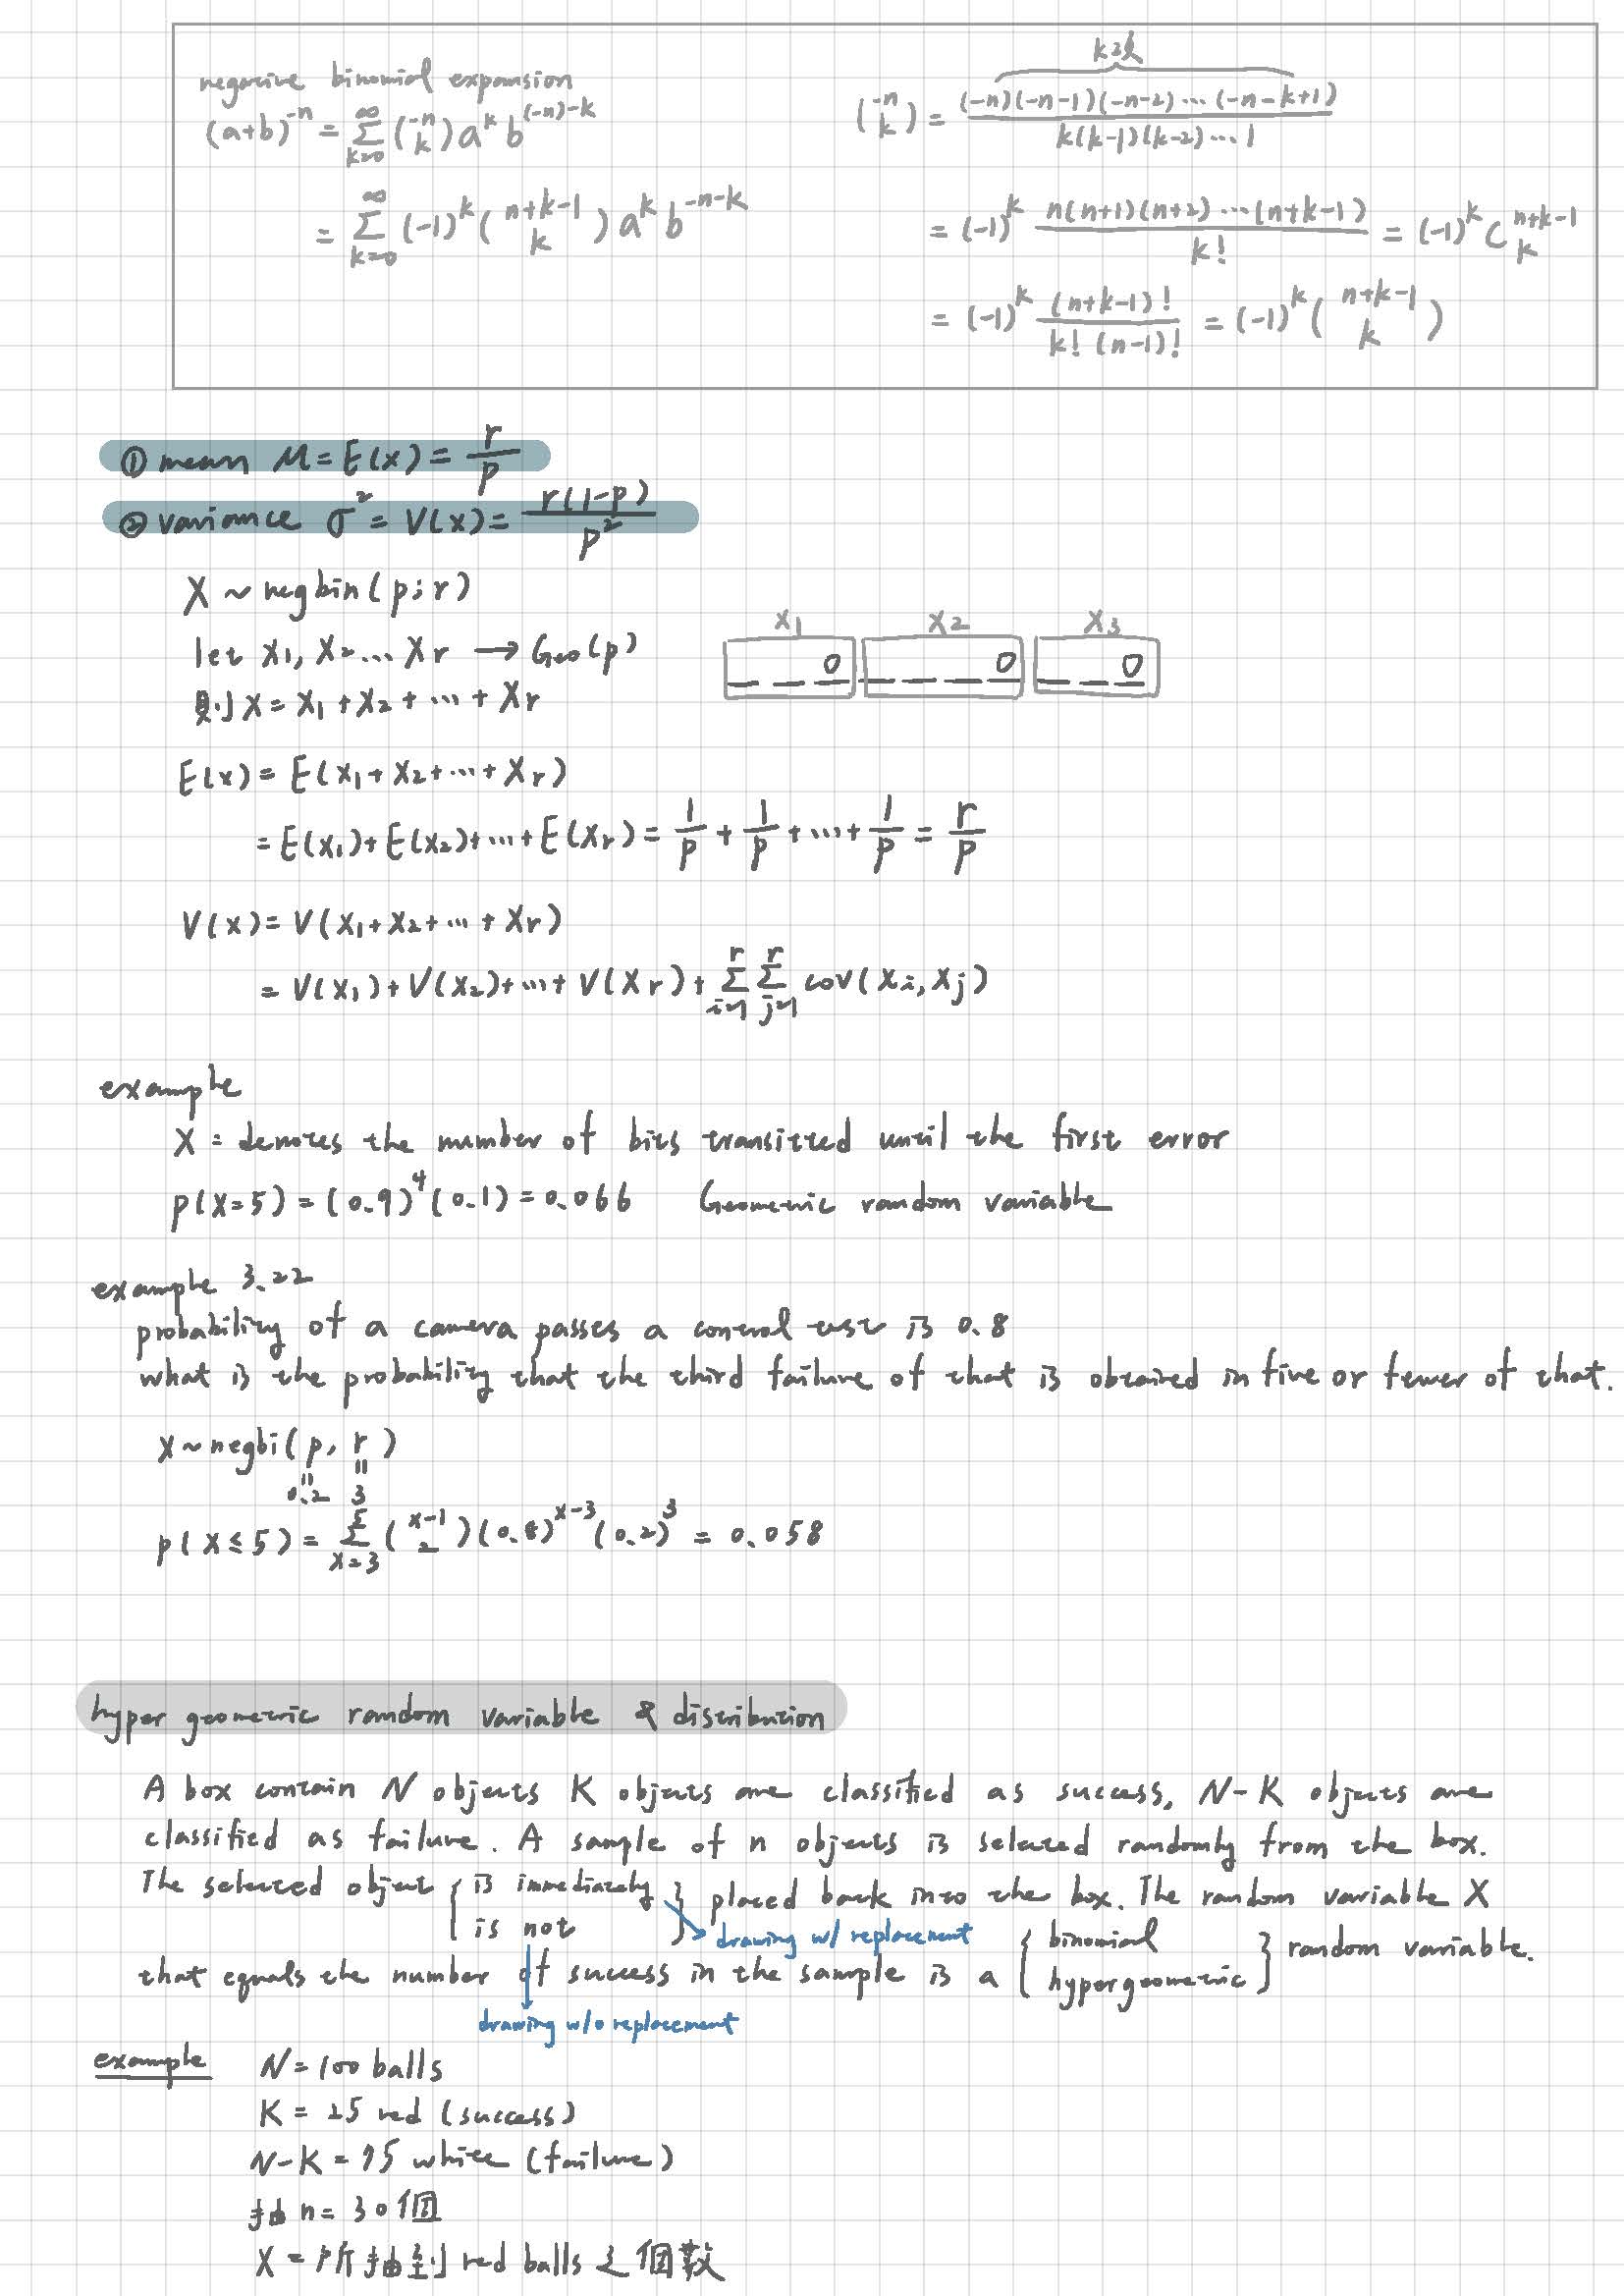 negative binomial expansion
(a+b)^{-n} = \sum_{k=0}^{\infty} \binom{-n}{k} a^k b^{(-n)-k}
= \sum_{k=0}^{\infty} (-1)^k \binom{n+k-1}{k} a^k b^{-n-k}
k項
\binom{-n}{k} = \frac{(-n)(-n-1)(-n-2)\cdots(-n-k+1)}{k(k-1)(k-2)\cdots1}
= (-1)^k \frac{n(n+1)(n+2)\cdots(n+k-1)}{k!} = (-1)^k C_k^{n+k-1}
= (-1)^k \frac{(n+k-1)!}{k!(n-1)!} = (-1)^k \binom{n+k-1}{k}
① mean μ = E(x) = \frac{r}{p}
② variance σ^2 = V(x) = \frac{r(1-p)}{p^2}
X ~ negbin(p; r)
let X_1, X_2 ... X_r → Geo(p)
則 X = X_1 + X_2 + ... + X_r
X_1 X_2 X_3
0 0 0
E(x) = E(X_1 + X_2 + ... + X_r)
= E(X_1) + E(X_2) + ... + E(X_r) = \frac{1}{p} + \frac{1}{p} + ... + \frac{1}{p} = \frac{r}{p}
V(x) = V(X_1 + X_2 + ... + X_r)
= V(X_1) + V(X_2) + ... + V(X_r) + \sum_{i=1}^{r} \sum_{j=1}^{r} cov(X_i, X_j)
example
X = denotes the number of bits transitted until the first error
p(X=5) = (0.9)^4 (0.1) = 0.066 Geometric random variable
example 3.22
probability of a camera passes a control test is 0.8
what is the probability that the third failure of that is obtained in five or fewer of that.
X ~ negbi(p, r)
0.2 3
p(X ≤ 5) = \sum_{x=3}^{5} \binom{x-1}{2} (0.8)^{x-3} (0.2)^3 = 0.058
hyper geometric random variable & distribution
A box contain N objects K objects are classified as success, N-K objects are
classified as failure. A sample of n objects is selected randomly from the box.
The selected object { is immediately / is not } placed back into the box. The random variable X
drawing w/ replacement
that equals the number of success in the sample is a { binomial / hypergeometric } random variable.
drawing w/o replacement
example N = 100 balls
K = 25 red (success)
N-K = 75 white (failure)
抽 n = 30個
X = 所抽到 red balls 之個數